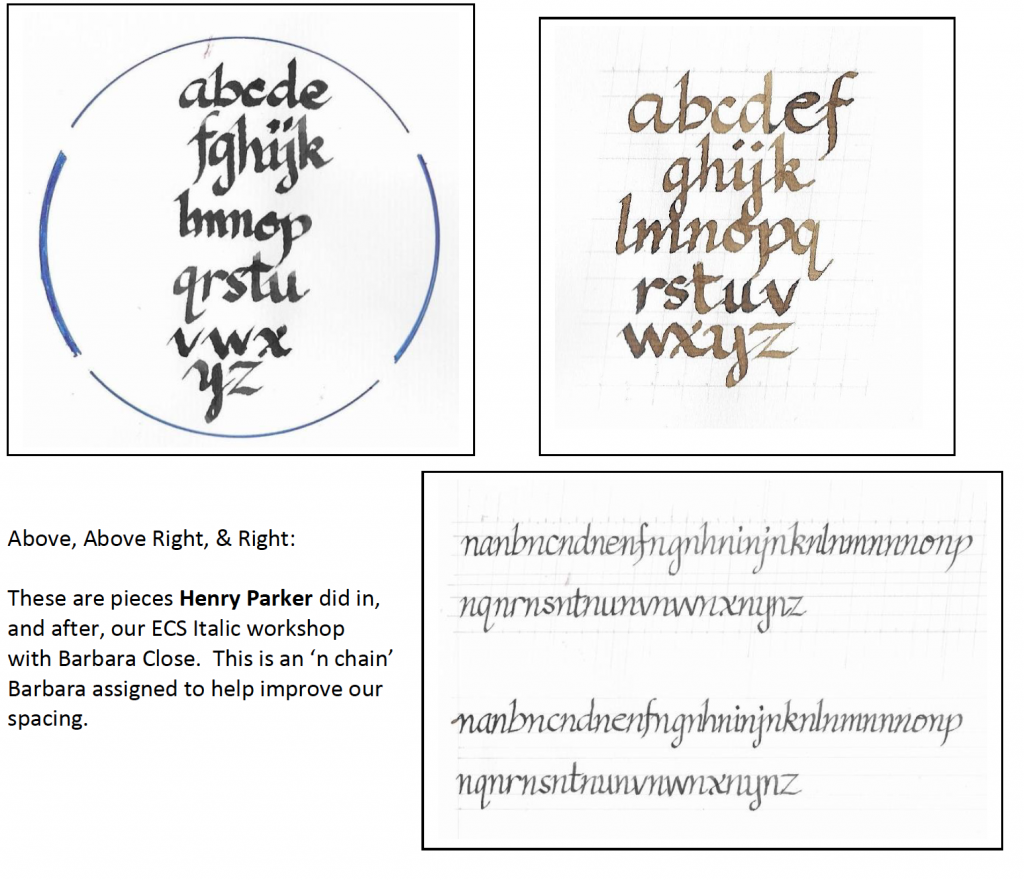 abcde
fghijk
lmnop
qrstu
vwx
yz
abcdef
ghijk
lmnopq
rstuv
wxyz
Above, Above Right, & Right:
These are pieces Henry Parker did in,
and after, our ECS Italic workshop
with Barbara Close. This is an ‘n chain’
Barbara assigned to help improve our
spacing.
nanbncndnenfngnhninjnknlnmnnnonp
nqnrnsntnunvnwnxnynz
nanbncndnenfngnhninjnknlnmnnnonp
nqnrnsntnunvnwnxnynz